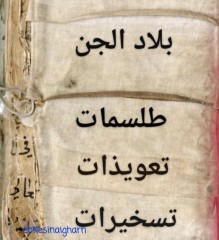 بلاد الجن
طلسمات
تعويذات
تسخيرات